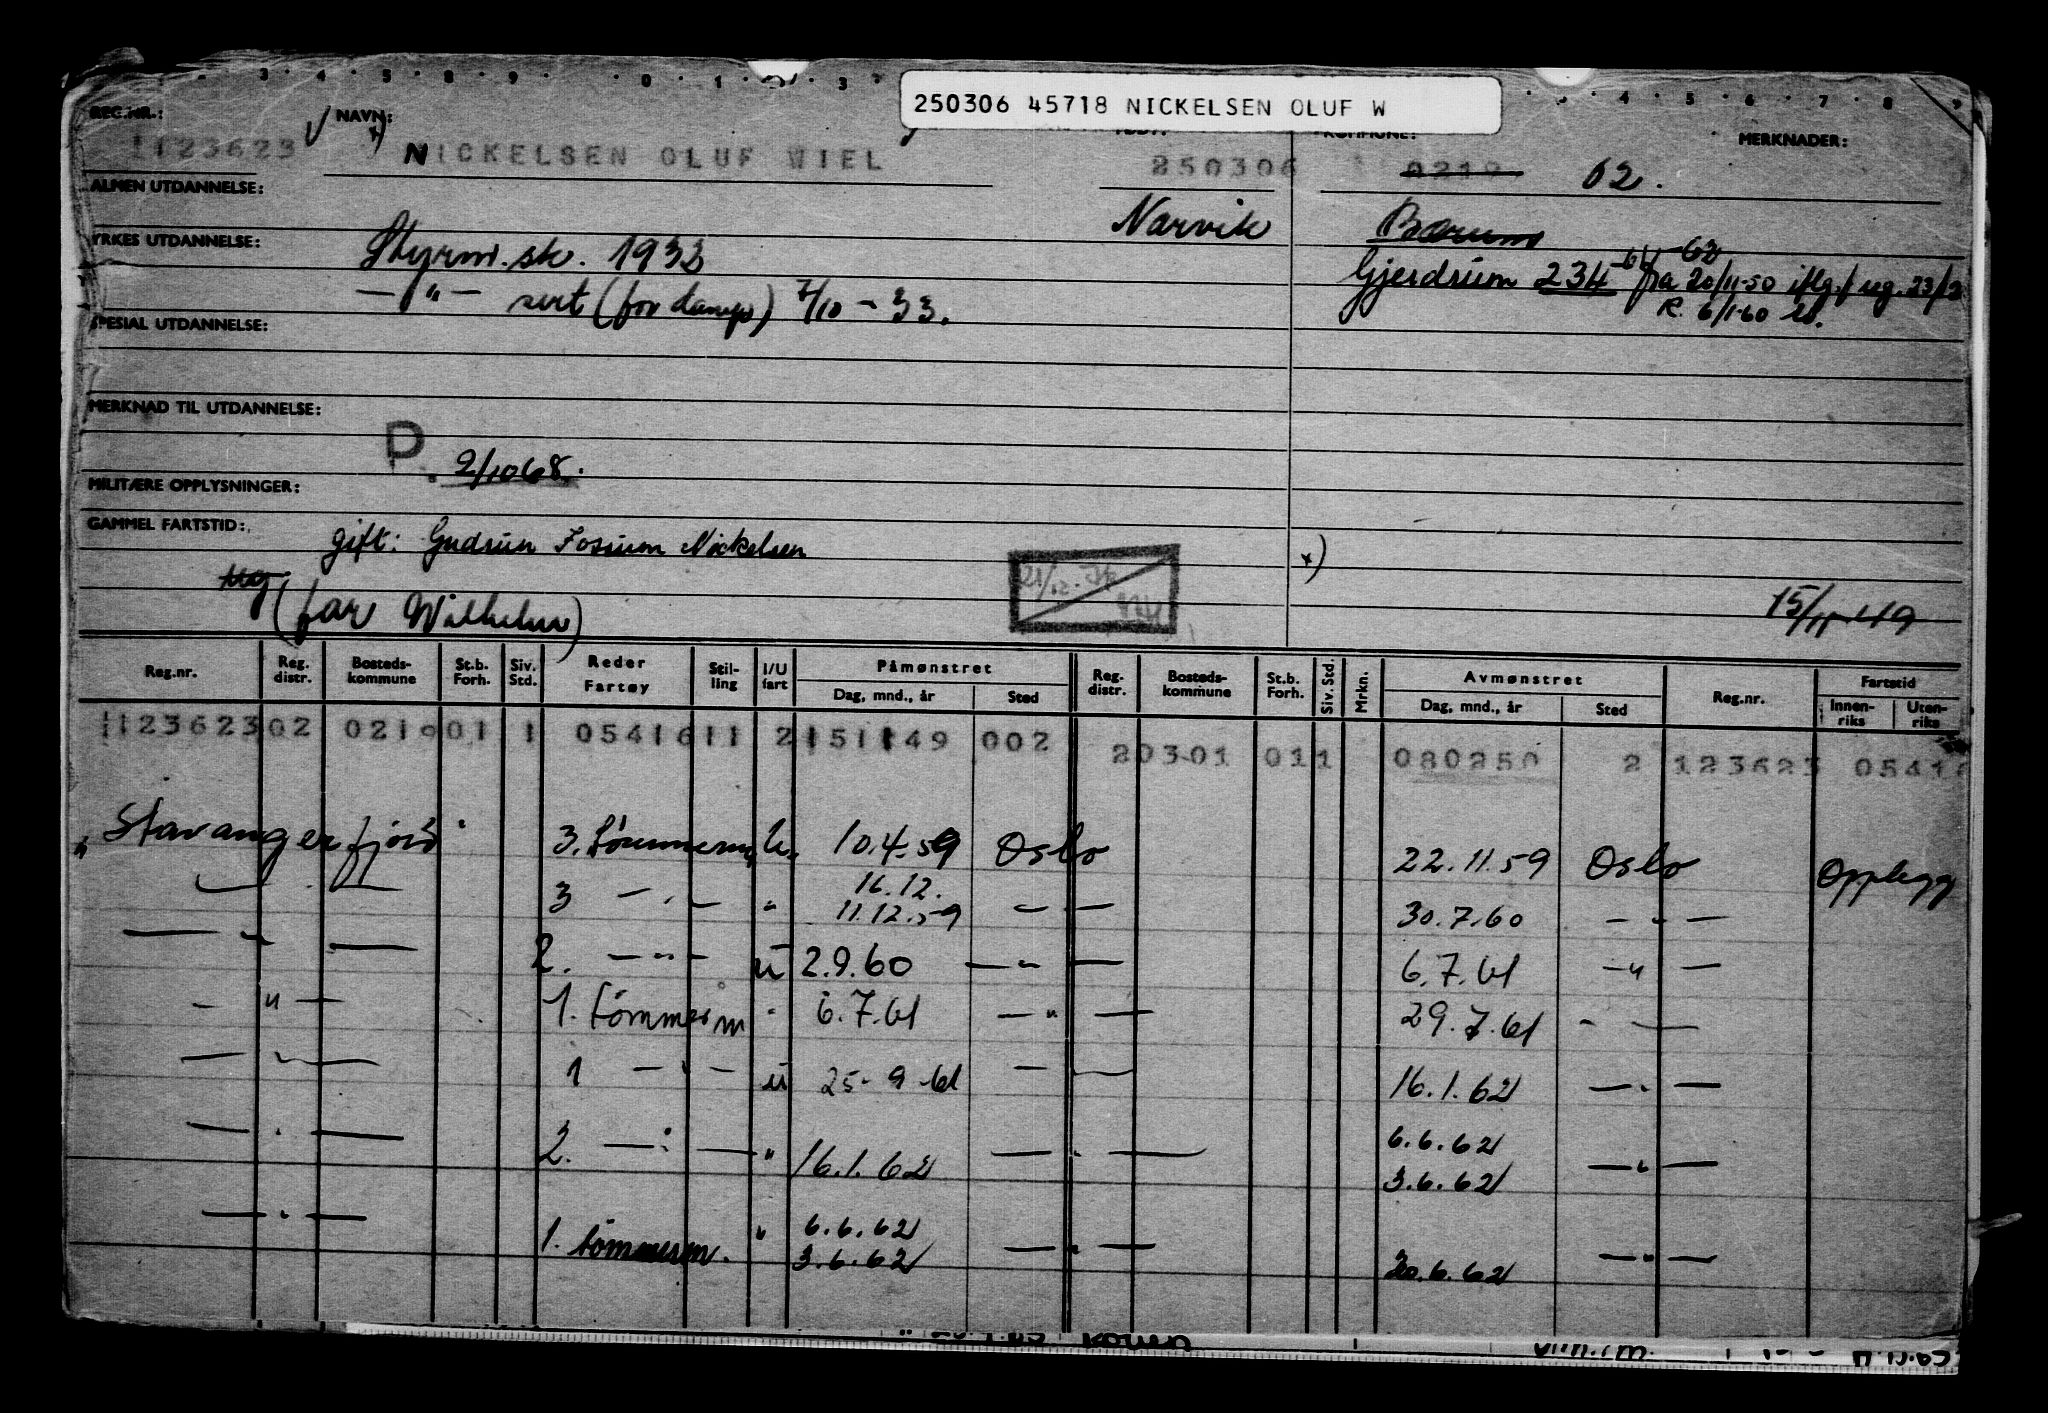 250306 45718 NICKELSEN OLUF W
REG.NR.: NAVN: KOMMUNE: MERKNADER:
1123623 NICKELSEN OLUF WIEL 250306 0219 02.
ALMEN UTDANNELSE:
Narvik Bærum
YRKES UTDANNELSE: Styrm. sk. 1932
Gjerdrum 234 fra 20/11-50 iflg.
— " — sert (for damp) 7/10 - 33.
R. 6/1-60
SPESIAL UTDANNELSE:
MERKNAD TIL UTDANNELSE:
P. 2/10 68.
MILITÆRE OPPLYSNINGER:
GAMMEL FARTSTID:
gift: Gudrun Fossum Nickelsen
x)
(far Wilhelm)
15/11-49
Reg.nr. Reg. distr. Bosteds-kommune St.b. Forh. Siv. Std. Reder Fartøy Stil-ling I/U fart Påmønstret Dag, mnd., år Sted Reg. distr. Bosteds-kommune St.b. Forh. Siv. Std. Mrkn. Avmønstret Dag, mnd., år Sted Reg.nr. Fartstid Innen-riks Uten-riks
1123623 02 0219 01 1 05416 11 2 151149 002 2 0301 01 1 080250 2 123623 05416
"Stavangerfjord" 3. tömmerm. U. 10.4.59 Oslo 22.11.59 Oslo Opplegg
— " — 3 — " — " 16.12. 11.12.59 — " — 30.7.60 — " —
— " — 2. — " — U 2.9.60 — " — 6.7.61 — " —
— " — 1. tömmerm " 6.7.61 — " — 29.7.61 — " —
— " — 1 — " — U 25-9-61 — " — 16.1.62 — " —
— " — 2. — " — " 16.1.62 — " — 6.6.62 3.6.62 — " —
— " — 1. tömmerm. " 6.6.62 3.6.62 — " — 20.6.62 — " —